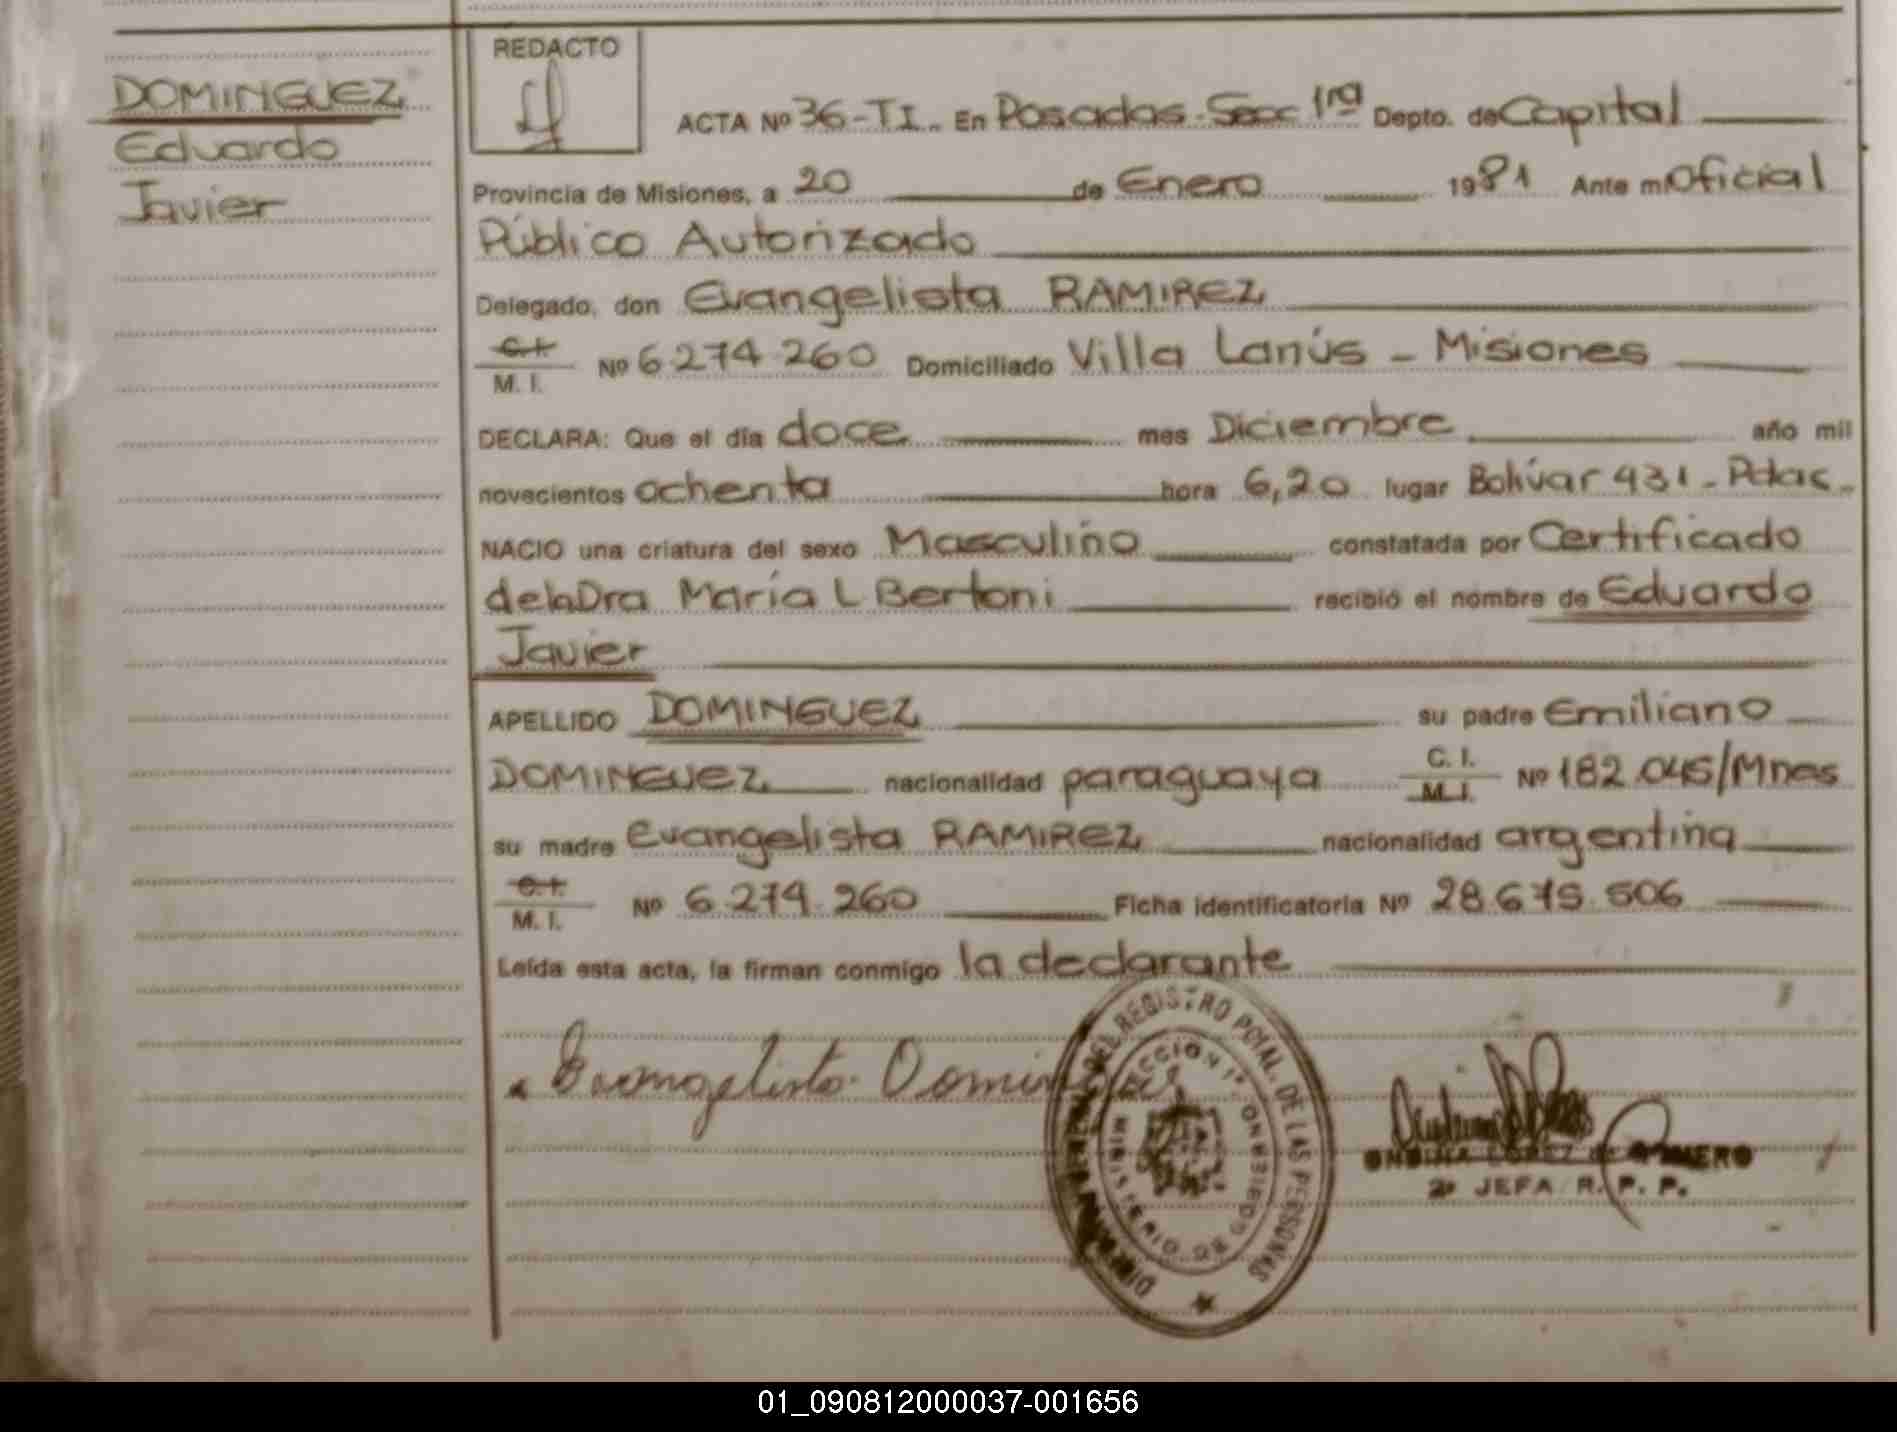 DOMINGUEZ
Eduardo
Javier
REDACTO
ACTA Nº 36-TI. En Posadas-Secc 1ra Depto. de Capital
Provincia de Misiones, a 20 de Enero 1981 Ante mí Oficial
Público Autorizado
Delegado, don Evangelista RAMIREZ
C.I.
M. I. Nº 6.274.260 Domiciliado Villa Lanús - Misiones
DECLARA: Que el día doce mes Diciembre año mil
novecientos ochenta hora 6,20 lugar Bolívar 431 - Pdas.
NACIO una criatura del sexo Masculino constatada por Certificado
de la Dra María L Bertoni recibió el nombre de Eduardo
Javier
APELLIDO DOMINGUEZ su padre Emiliano
DOMINGUEZ nacionalidad paraguaya C. I. M. I. Nº 182.045/Mnes
su madre Evangelista RAMIREZ nacionalidad argentina
C.I.
M. I. Nº 6.274.260 Ficha identificatoria Nº 28.675.506
Leída esta acta, la firman conmigo la declarante
Evangelista Dominguez
DEL REGISTRO PCIAL. DE LAS PERSONAS
SECCION 1ª
MINISTERIO DE GOBIERNO
LOPEZ de ROMERO
2ª JEFA R. P. P.
01_090812000037-001656